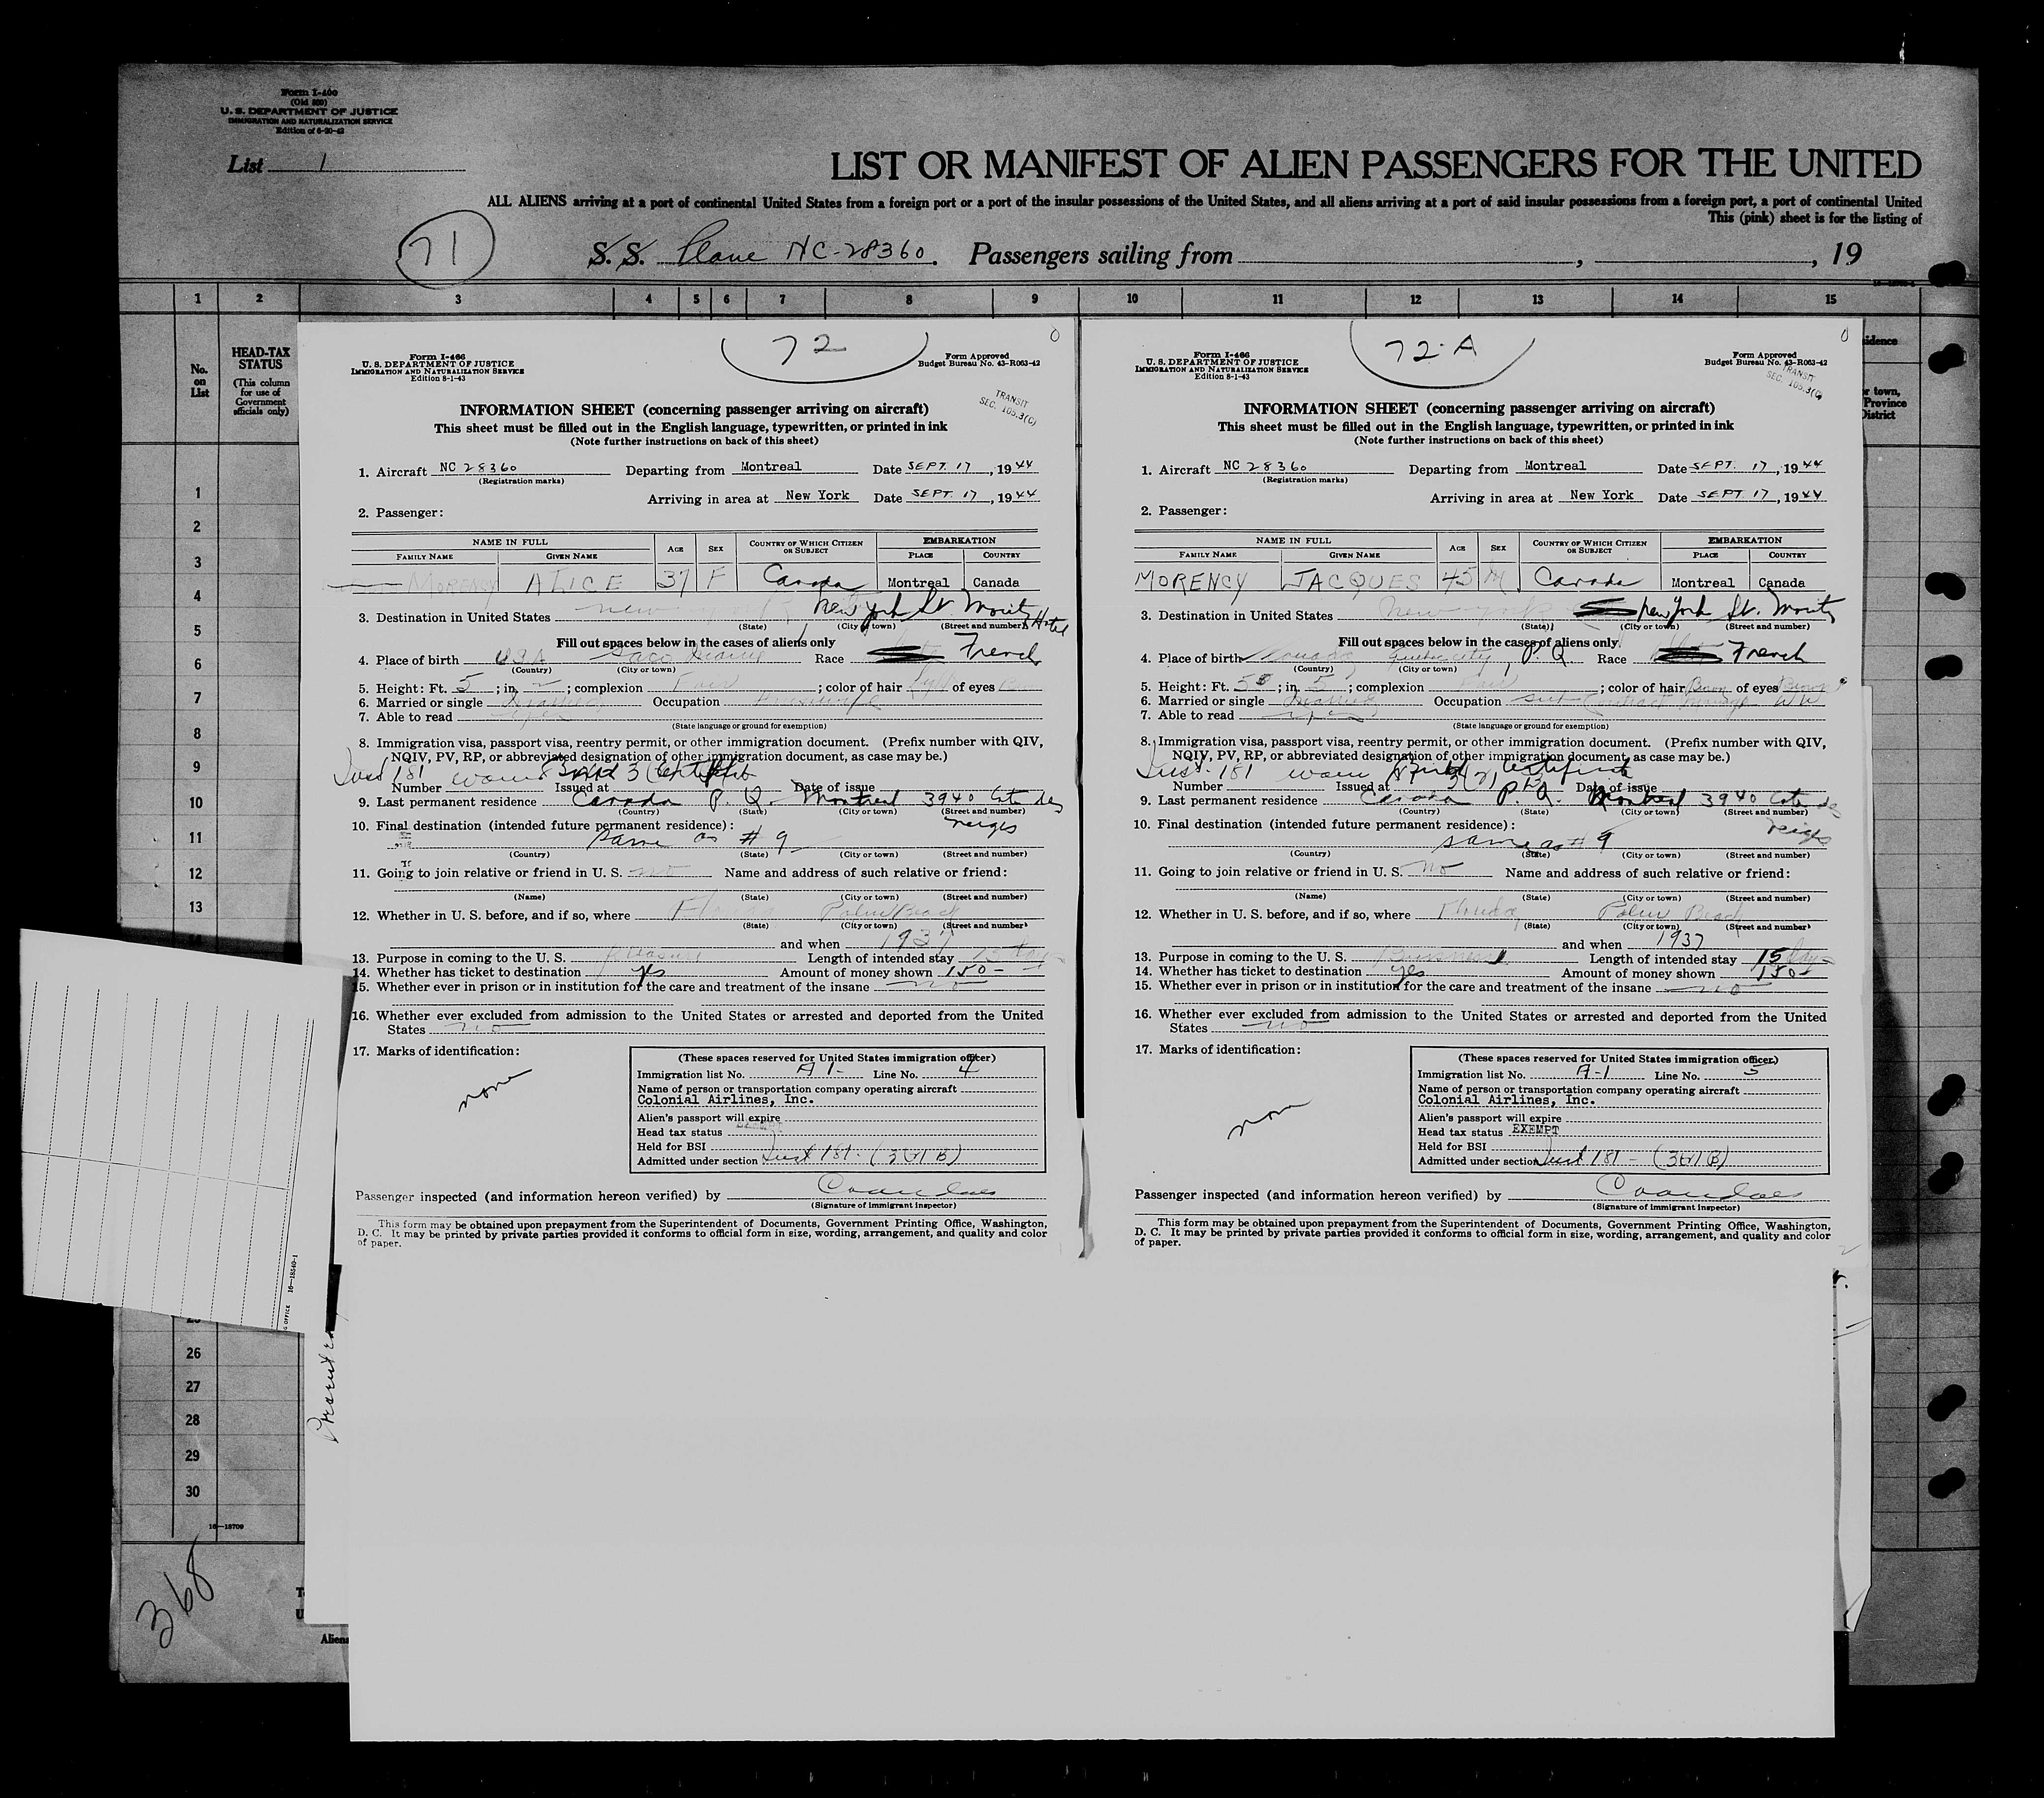 Form I-400
(Old 500)
U. S. DEPARTMENT OF JUSTICE
IMMIGRATION AND NATURALIZATION SERVICE
Edition of 6-20-42
List 1
LIST OR MANIFEST OF ALIEN PASSENGERS FOR THE UNITED
ALL ALIENS arriving at a port of continental United States from a foreign port or a port of the insular possessions of the United States, and all aliens arriving at a port of said insular possessions from a foreign port, a port of continental United
This (pink) sheet is for the listing of
71
S. S. Plane NC-28360. Passengers sailing from , , 19
1 2 3 4 5 6 7 8 9 10 11 12 13 14 15
No. on List
HEAD-TAX STATUS
(This column for use of Government officials only)
1
2
3
4
5
6
7
8
9
10
11
12
13
26
27
28
29
30
16—18709
368
Aliens
72
Form I-466
U. S. DEPARTMENT OF JUSTICE
IMMIGRATION AND NATURALIZATION SERVICE
Edition 8-1-43
Form Approved
Budget Bureau No. 43-R063-42
TRANSIT
SEC. 105.3(C)
INFORMATION SHEET (concerning passenger arriving on aircraft)
This sheet must be filled out in the English language, typewritten, or printed in ink
(Note further instructions on back of this sheet)
1. Aircraft NC 28360 Departing from Montreal Date SEPT. 17, 1944
(Registration marks)
Arriving in area at New York Date SEPT. 17, 1944
2. Passenger:
NAME IN FULL AGE SEX COUNTRY OF WHICH CITIZEN OR SUBJECT EMBARKATION
FAMILY NAME GIVEN NAME PLACE COUNTRY
MORENCY ALICE 37 F Canada Montreal Canada
3. Destination in United States New York St. Moritz Hotel
(State) (City or town) (Street and number)
Fill out spaces below in the cases of aliens only
4. Place of birth USA Saco Maine Race French
(Country) (City or town)
5. Height: Ft. 5; in. 2; complexion Fair; color of hair Light of eyes
6. Married or single Married Occupation Housewife
7. Able to read yes
(State language or ground for exemption)
8. Immigration visa, passport visa, reentry permit, or other immigration document. (Prefix number with QIV,
NQIV, PV, RP, or abbreviated designation of other immigration document, as case may be.)
Number Issued at Date of issue
9. Last permanent residence Canada P. Q. Montreal 3940 Cote des Neiges
(Country) (State) (City or town) (Street and number)
10. Final destination (intended future permanent residence):
same as # 9
(Country) (State) (City or town) (Street and number)
11. Going to join relative or friend in U. S. no Name and address of such relative or friend:
(Name) (State) (City or town) (Street and number)
12. Whether in U. S. before, and if so, where Florida Palm Beach
(State) (City or town) (Street and number)
and when 1937
13. Purpose in coming to the U. S. Pleasure Length of intended stay 15 days
14. Whether has ticket to destination yes Amount of money shown 150-
15. Whether ever in prison or in institution for the care and treatment of the insane no
16. Whether ever excluded from admission to the United States or arrested and deported from the United
States no
17. Marks of identification:
none
(These spaces reserved for United States immigration officer)
Immigration list No. A 1- Line No. 4
Name of person or transportation company operating aircraft
Colonial Airlines, Inc.
Alien's passport will expire
Head tax status
Held for BSI
Admitted under section Inst 181-
Passenger inspected (and information hereon verified) by
(Signature of immigrant inspector)
This form may be obtained upon prepayment from the Superintendent of Documents, Government Printing Office, Washington,
D. C. It may be printed by private parties provided it conforms to official form in size, wording, arrangement, and quality and color
of paper.
72-A
Form I-466
U. S. DEPARTMENT OF JUSTICE
IMMIGRATION AND NATURALIZATION SERVICE
Edition 8-1-43
Form Approved
Budget Bureau No. 43-R063-42
TRANSIT
SEC. 105.3(C)
INFORMATION SHEET (concerning passenger arriving on aircraft)
This sheet must be filled out in the English language, typewritten, or printed in ink
(Note further instructions on back of this sheet)
1. Aircraft NC 28360 Departing from Montreal Date SEPT. 17, 1944
(Registration marks)
Arriving in area at New York Date SEPT. 17, 1944
2. Passenger:
NAME IN FULL AGE SEX COUNTRY OF WHICH CITIZEN OR SUBJECT EMBARKATION
FAMILY NAME GIVEN NAME PLACE COUNTRY
MORENCY JACQUES 45 M Canada Montreal Canada
3. Destination in United States New York St. Moritz
(State) (City or town) (Street and number)
Fill out spaces below in the cases of aliens only
4. Place of birth Canada Quebec City, P. Q Race French
(Country) (City or town)
5. Height: Ft. 5; in. 5; complexion Fair; color of hair Brown of eyes Brown
6. Married or single Married Occupation
7. Able to read yes
(State language or ground for exemption)
8. Immigration visa, passport visa, reentry permit, or other immigration document. (Prefix number with QIV,
NQIV, PV, RP, or abbreviated designation of other immigration document, as case may be.)
Number Issued at Date of issue
9. Last permanent residence Canada P. Q. Montreal 3940 Cote des Neiges
(Country) (State) (City or town) (Street and number)
10. Final destination (intended future permanent residence):
same as # 9
(Country) (State) (City or town) (Street and number)
11. Going to join relative or friend in U. S. no Name and address of such relative or friend:
(Name) (State) (City or town) (Street and number)
12. Whether in U. S. before, and if so, where Florida Palm Beach
(State) (City or town) (Street and number)
and when 1937
13. Purpose in coming to the U. S. Business Length of intended stay 15 days
14. Whether has ticket to destination yes Amount of money shown 150-
15. Whether ever in prison or in institution for the care and treatment of the insane no
16. Whether ever excluded from admission to the United States or arrested and deported from the United
States no
17. Marks of identification:
none
(These spaces reserved for United States immigration officer)
Immigration list No. A-1 Line No. 5
Name of person or transportation company operating aircraft
Colonial Airlines, Inc.
Alien's passport will expire
Head tax status EXEMPT
Held for BSI
Admitted under section Inst 181-
Passenger inspected (and information hereon verified) by
(Signature of immigrant inspector)
This form may be obtained upon prepayment from the Superintendent of Documents, Government Printing Office, Washington,
D. C. It may be printed by private parties provided it conforms to official form in size, wording, arrangement, and quality and color
of paper.